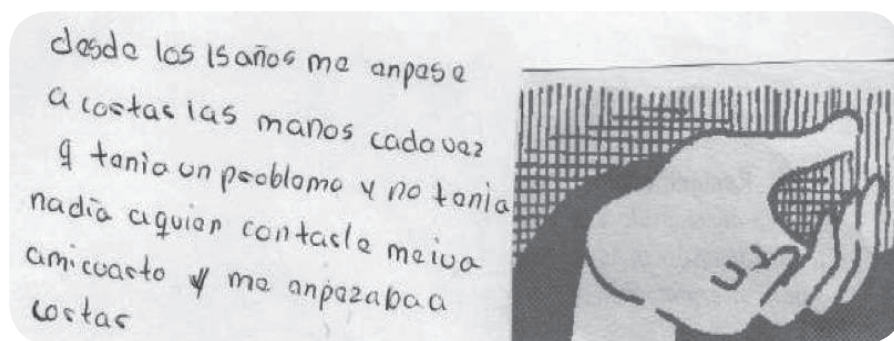 desde los 15 años me anpese
a cortar las manos cada vez
q tenia un problema y no tenia
nadia a quien contarle me iva
a mi cuarto y me anpezaba a
cortar